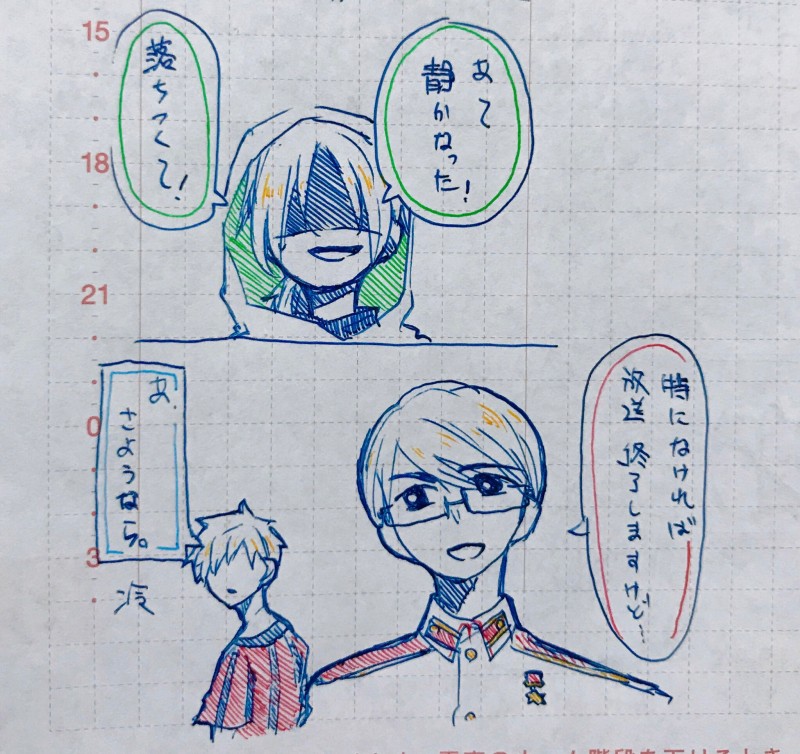 15
18
21
0
3
あて
静かなった!
落ちてくて!
特になければ
放送終了しますけど…
あ、
さようなら。
冷